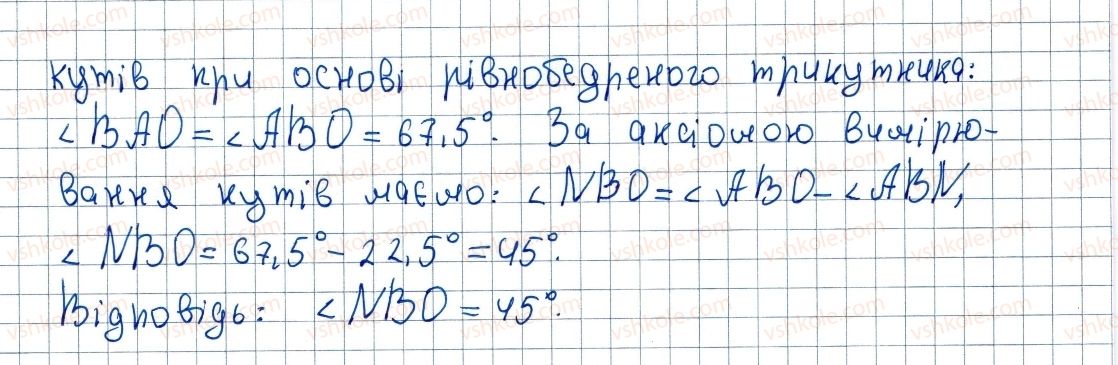 кутів при основі рівнобедреного трикутника:
∠BAO = ∠ABO = 67,5°. За аксіомою вимірю-
вання кутів маємо: ∠NBO = ∠ABO - ∠ABN,
∠NBO = 67,5° - 22,5° = 45°.
Відповідь: ∠NBO = 45°.